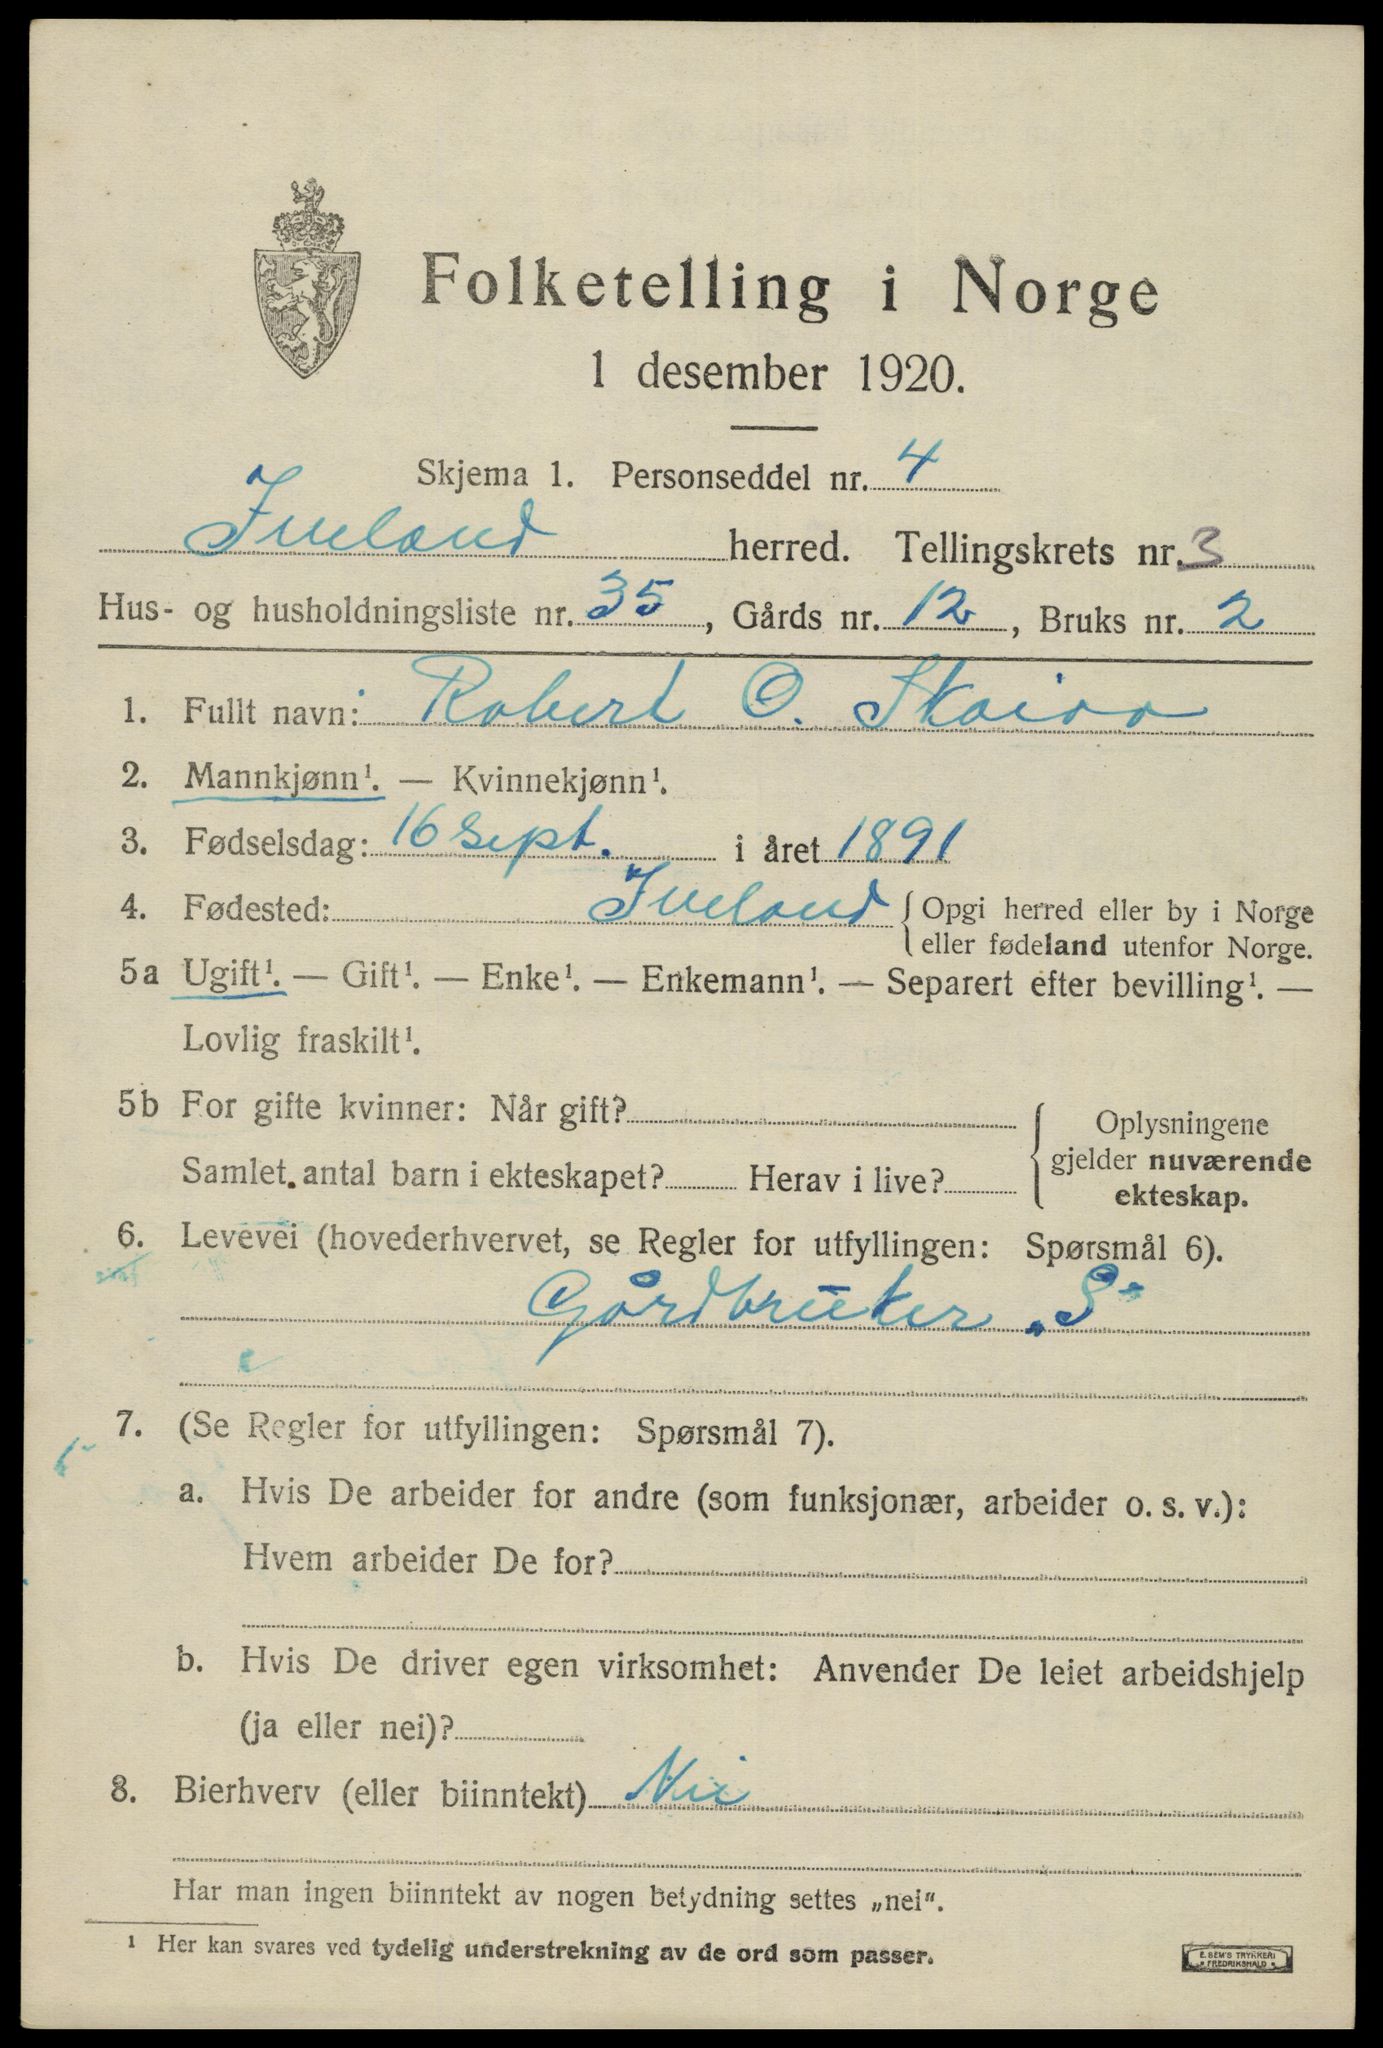 Folketelling i Norge
1 desember 1920.
Skjema 1. Personseddel nr. 4
Iveland herred. Tellingskrets nr. 3
Hus- og husholdningsliste nr. 35, Gårds nr. 12, Bruks nr. 2
1. Fullt navn: Robert O. Skaiaa
2. Mannkjønn¹. — Kvinnekjønn¹.
3. Fødselsdag: 16 sept. i året 1891
4. Fødested: Iveland { Opgi herred eller by i Norge
eller fødeland utenfor Norge.
5a Ugift¹. — Gift¹. — Enke¹. — Enkemann¹. — Separert efter bevilling¹. —
Lovlig fraskilt¹.
5b For gifte kvinner: Når gift?
Samlet antal barn i ekteskapet? Herav i live?
Oplysningene
gjelder nuværende
ekteskap.
6. Levevei (hovederhvervet, se Regler for utfyllingen: Spørsmål 6).
Gårdbruker „S"
7. (Se Regler for utfyllingen: Spørsmål 7).
a. Hvis De arbeider for andre (som funksjonær, arbeider o. s. v.):
Hvem arbeider De for?
b. Hvis De driver egen virksomhet: Anvender De leiet arbeidshjelp
(ja eller nei)?
8. Bierhverv (eller biinntekt) Nei
Har man ingen biinntekt av nogen betydning settes „nei".
¹ Her kan svares ved tydelig understrekning av de ord som passer.
E. SEM'S TRYKKERI
FREDRIKSHALD